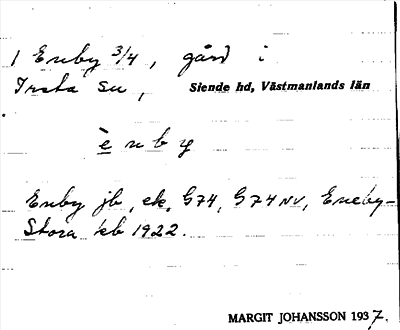 1 Enby 3/4, gård i
Irsta sn, Siende hd, Västmanlands län
è n b y
Enby jb, ek, G74, G74 NV, Eneby-
Stora kb 1922.
MARGIT JOHANSSON 1937.